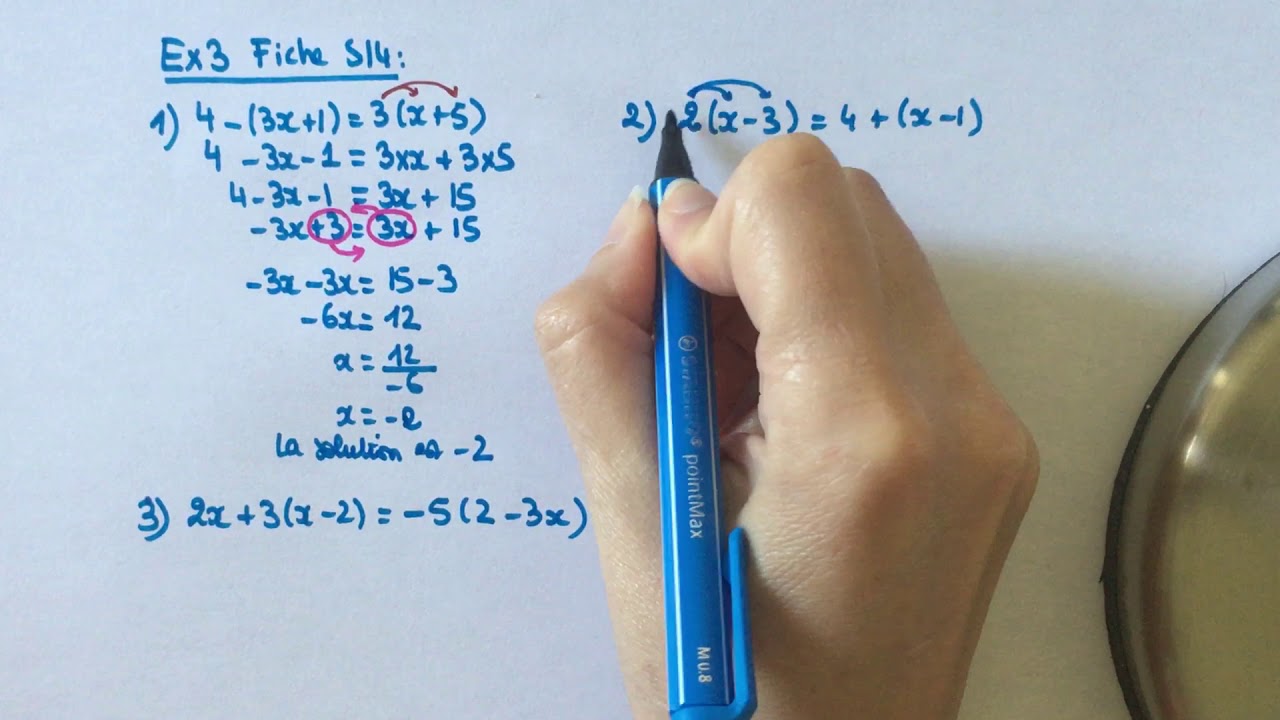 Ex3 Fiche S14:
1) 4 - (3x+1) = 3(x+5)
4 - 3x - 1 = 3×x + 3×5
4 - 3x - 1 = 3x + 15
-3x +3 = 3x + 15
-3x - 3x = 15 - 3
-6x = 12
x = 12/-6
x = -2
La solution est -2
2) 2(x-3) = 4 + (x-1)
3) 2x + 3(x-2) = -5(2-3x)
pointMax
MU.8